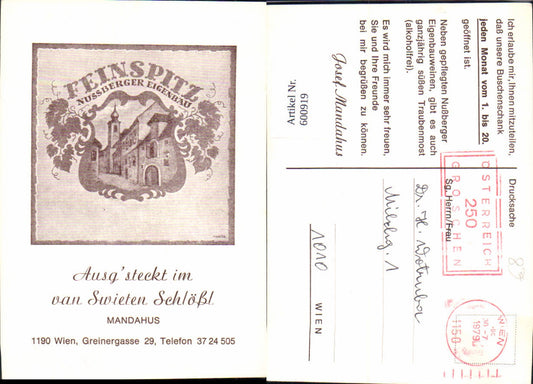 FEINSPITZ
NUSSBERGER EIGENBAU
Ausg'steckt im
van Swieten Schlößl
MANDAHUS
1190 Wien, Greinergasse 29, Telefon 37 24 505
Ich erlaube mir, Ihnen mitzuteilen,
daß unsere Buschenschank
jeden Monat vom 1. bis 20.
geöffnet ist.
Neben gepflegten Nußberger
Eigenbauweinen, gibt es auch
ganzjährig süßen Traubenmost
(alkoholfrei).
Es wird mich immer sehr freuen,
Sie und Ihre Freunde
bei mir begrüßen zu können.
Josef Mandahus
Artikel Nr.
600919
Drucksache
ÖSTERREICH
250
GROSCHEN
WIEN
30.-7.
1979
1150
Sg. Herrn/Frau
Dr. H. Wotruba
Milchg. 1
1010
WIEN